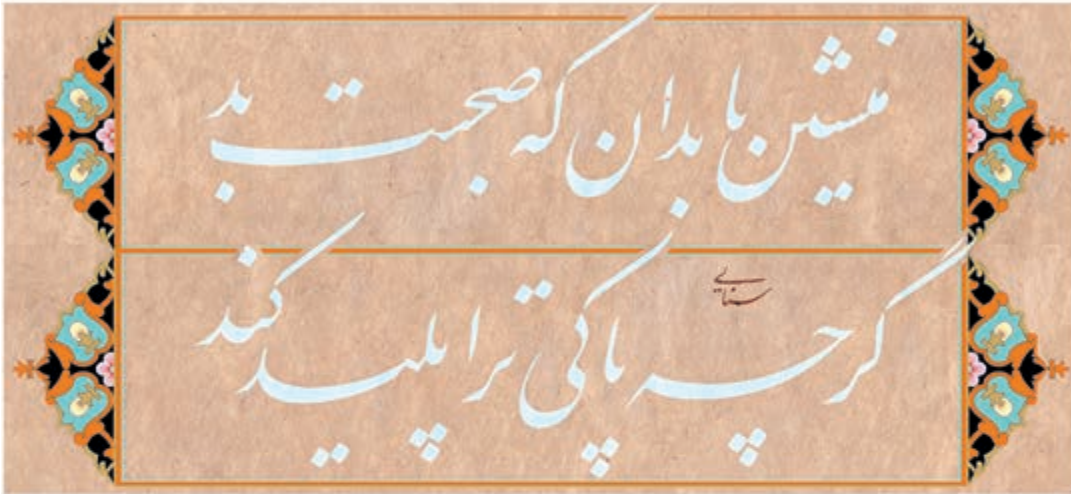 منشین با بدان که صحبت بد
گرچه پاکی ترا پلید کند
سنایی